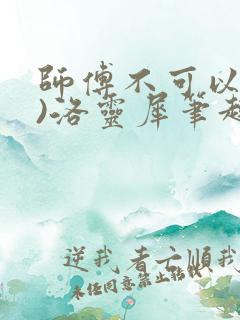 師傅不可以
)洛靈犀筆趣
逆我者亡順我
未任同意禁止轉載